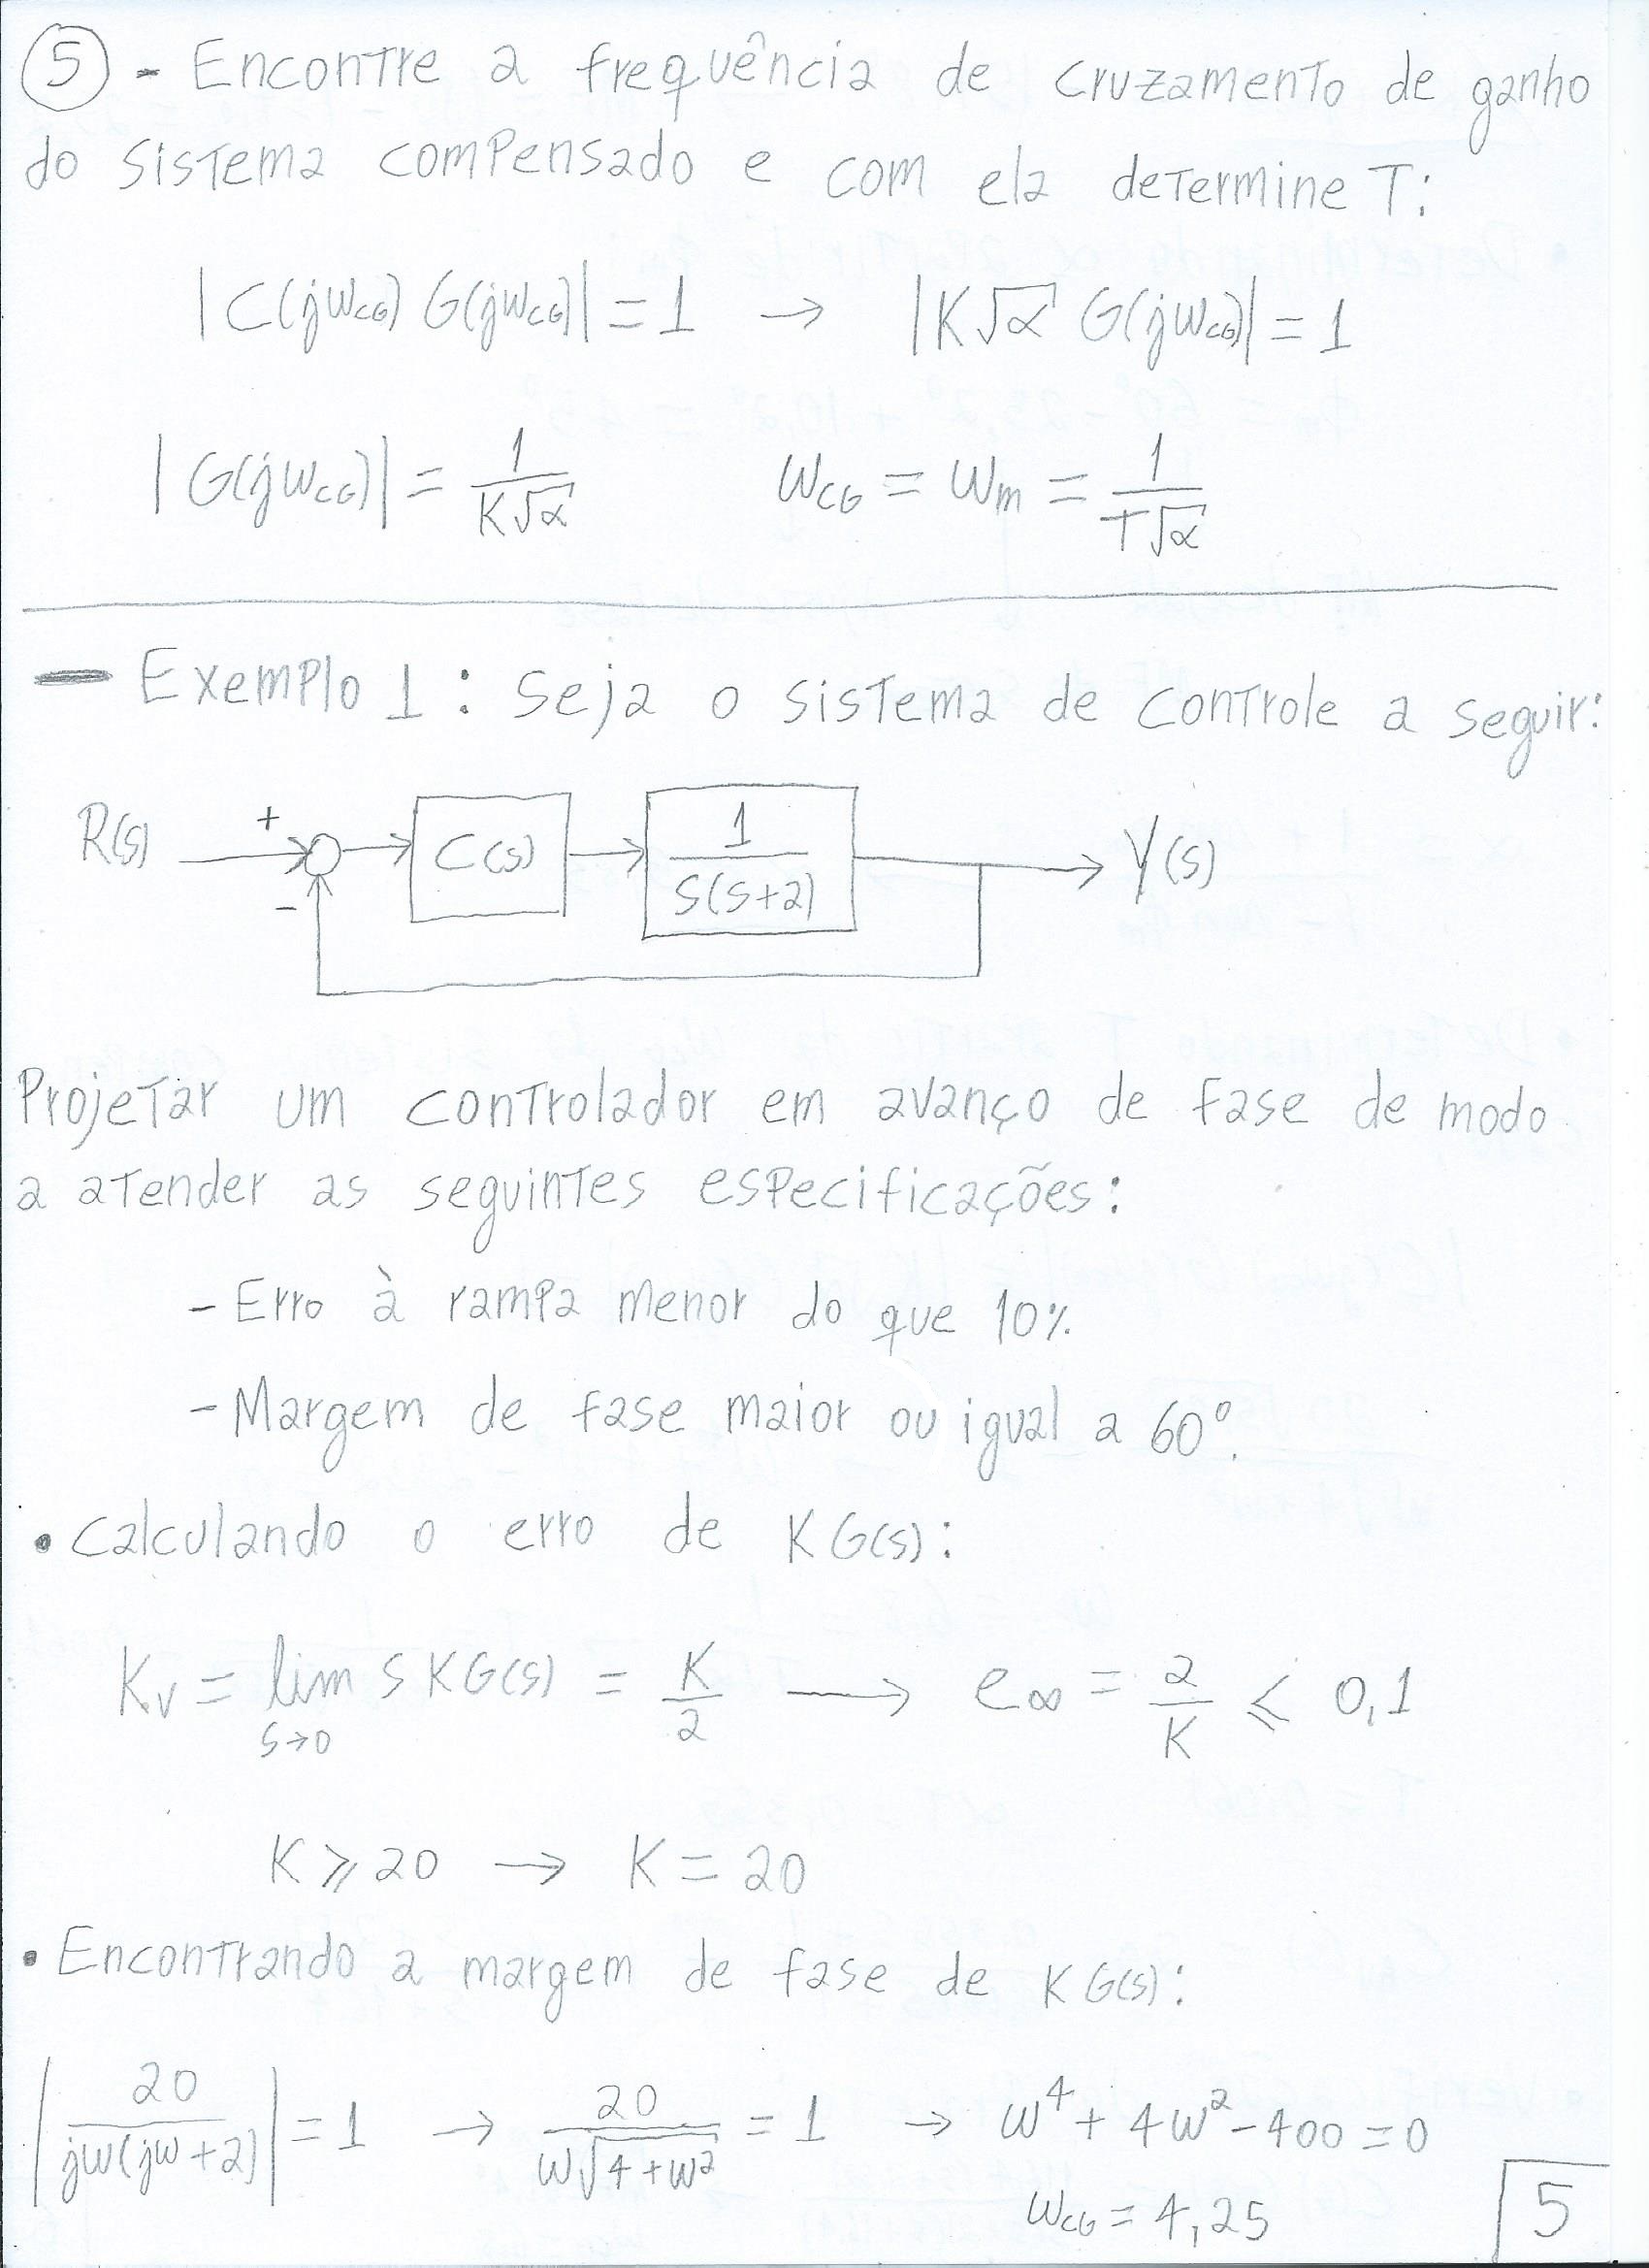 5 - Encontre a frequência de cruzamento de ganho
do sistema compensado e com ela determine T:
|C(jωcG) G(jωcG)| = 1 → |K√α G(jωcG)| = 1
|G(jωcG)| = 1/(K√α) ωcG = ωm = 1/(T√α)
- Exemplo 1: Seja o sistema de controle a seguir:
R(s) + - C(s) 1/(s(s+2)) Y(s)
Projetar um controlador em avanço de fase de modo
a atender as seguintes especificações:
- Erro à rampa menor do que 10%
- Margem de fase maior ou igual a 60°.
• Calculando o erro de KG(s):
Kv = lim s→0 s KG(s) = K/2 → e∞ = 2/K ⩽ 0,1
K ⩾ 20 → K = 20
• Encontrando a margem de fase de KG(s):
|20/(jω(jω+2))| = 1 → 20/(ω√(4+ω²)) = 1 → ω⁴ + 4ω² - 400 = 0
ωcG = 4,25
5